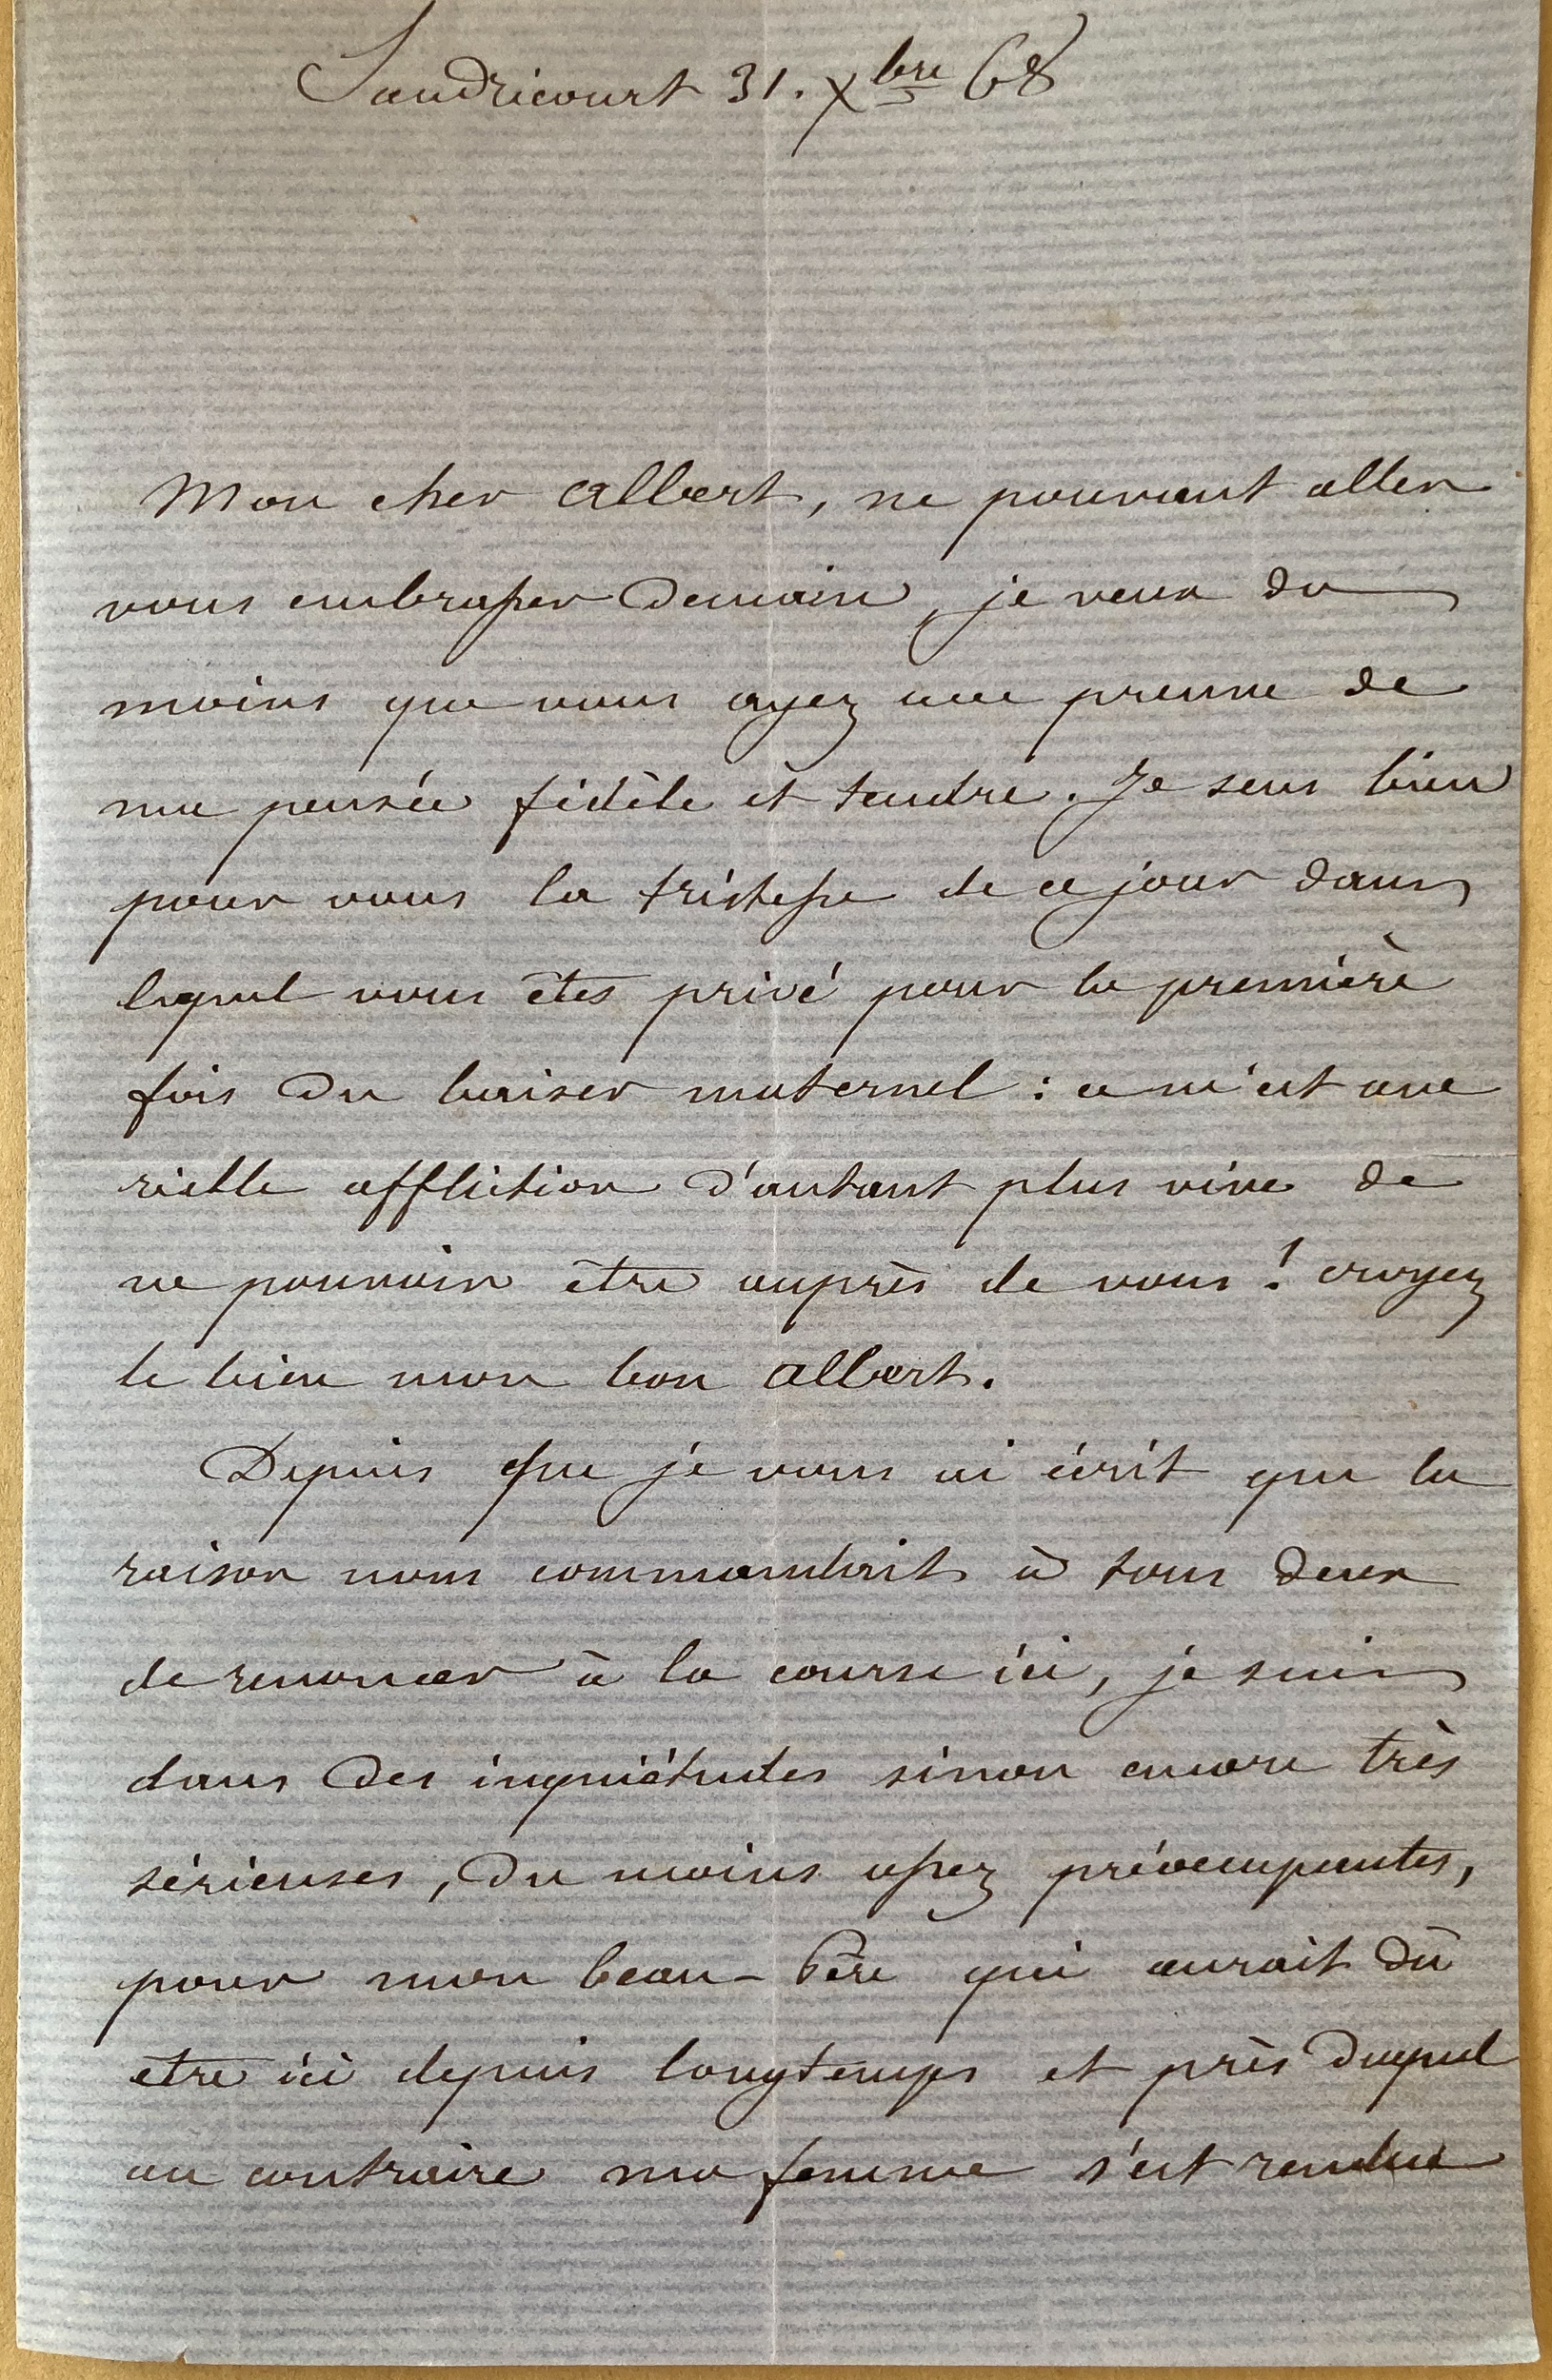 Sandricourt 31. Xbre 68
Mon cher Albert, ne pouvant aller
vous embrasser demain, je veux du
moins que vous ayez une preuve de
ma pensée fidèle et tendre. Je sens bien
pour vous la tristesse de ce jour dans
lequel vous êtes privé pour la première
fois du baiser maternel : ce m'est une
réelle affliction d'autant plus vive de
ne pouvoir être auprès de vous ! croyez
le bien mon bon Albert.
Depuis que je vous ai écrit que la
raison nous commandait à tous deux
de renoncer à la course ici, je suis
dans des inquiétudes sinon encore très
sérieuses, du moins assez préoccupantes,
pour mon beau-Père qui aurait dû
etre ici depuis longtemps et près duquel
au contraire ma femme s'est rendue